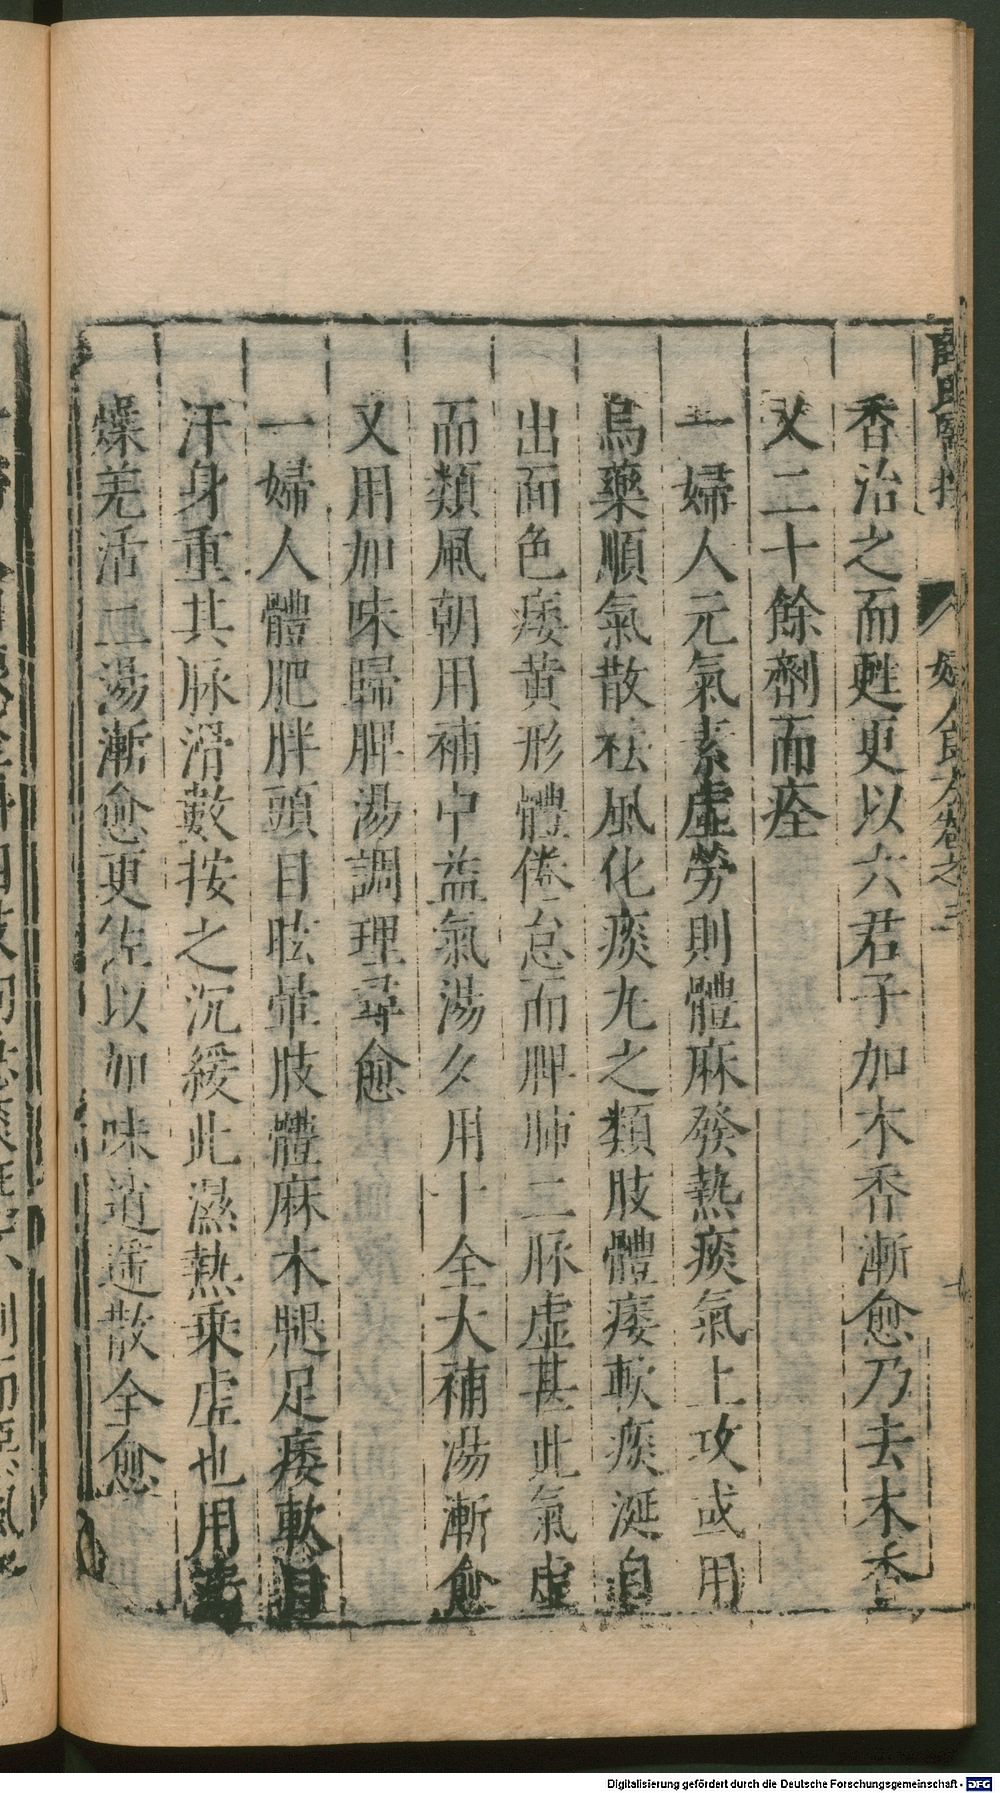 香治之而甦更以六君子加木香漸愈乃去木香
又二十餘劑而痊
一婦人元氣素虛勞則體麻發熱痰氣上攻或用
烏藥順氣散祛風化痰丸之類肢體痿軟痰涎自
出面色痿黃形體倦怠而脾肺二脉虛甚此氣虛
而類風朝用補中益氣湯夕用十全大補湯漸愈
又用加味歸脾湯調理尋愈
一婦人體肥胖頭目眩暈肢體麻木腿足痿軟自
汗身重其脉滑數按之沉緩此濕熱乗虛也用
燥羌活二湯漸愈更佐以加味逍遥散全愈
Digitalisierung gefördert durch die Deutsche Forschungsgemeinschaft - DFG